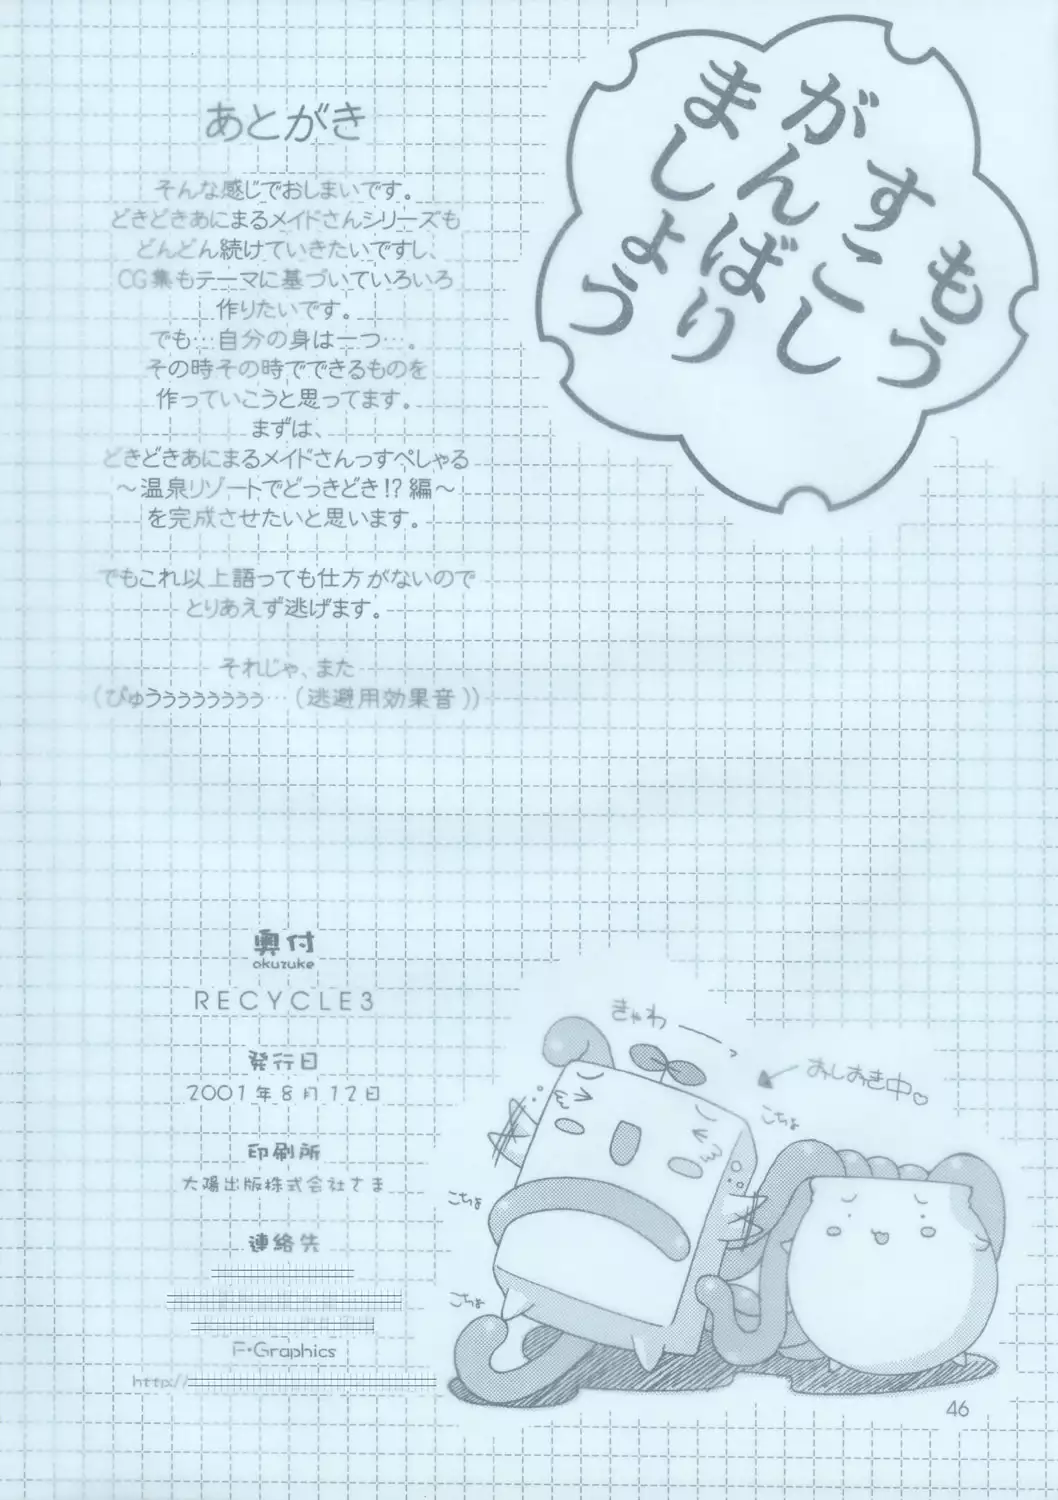 もう
すこし
がんばり
ましょう
あとがき
そんな感じでおしまいです。
どきどきあにまるメイドさんシリーズも
どんどん続けていきたいですし、
CG集もテーマに基づいていろいろ
作りたいです。
でも…自分の身は一つ…。
その時その時でできるものを
作っていこうと思ってます。
まずは、
どきどきあにまるメイドさんっすぺしゃる
～温泉リゾートでどっきどき!?編～
を完成させたいと思います。
でもこれ以上語っても仕方がないので
とりあえず逃げます。
それじゃ、また
(ぴゅうぅぅぅぅぅぅぅ…(逃避用効果音))
奥付
okuzuke
RECYCLE3
発行日
2001年8月12日
印刷所
大陽出版株式会社さま
連絡先
F・Graphics
http://
きゃわ
おしおき中♡
こちょ
こちょ
こちょ
46